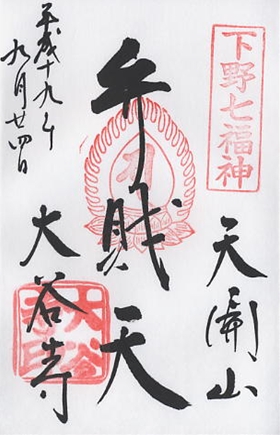 下野七福神
天開山
弁財天
大谷寺
平成十九年
九月廿四日